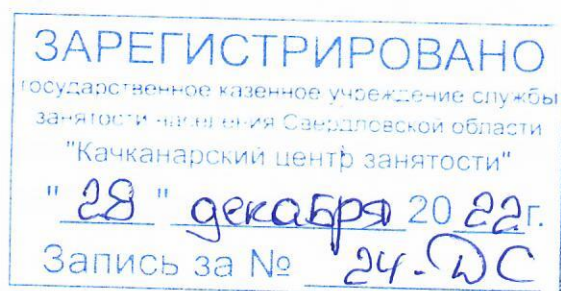 ЗАРЕГИСТРИРОВАНО
государственное казенное учреждение службы
занятости населения Свердловской области
"Качканарский центр занятости"
"28" декабря 2022г.
Запись за № 24-ДС